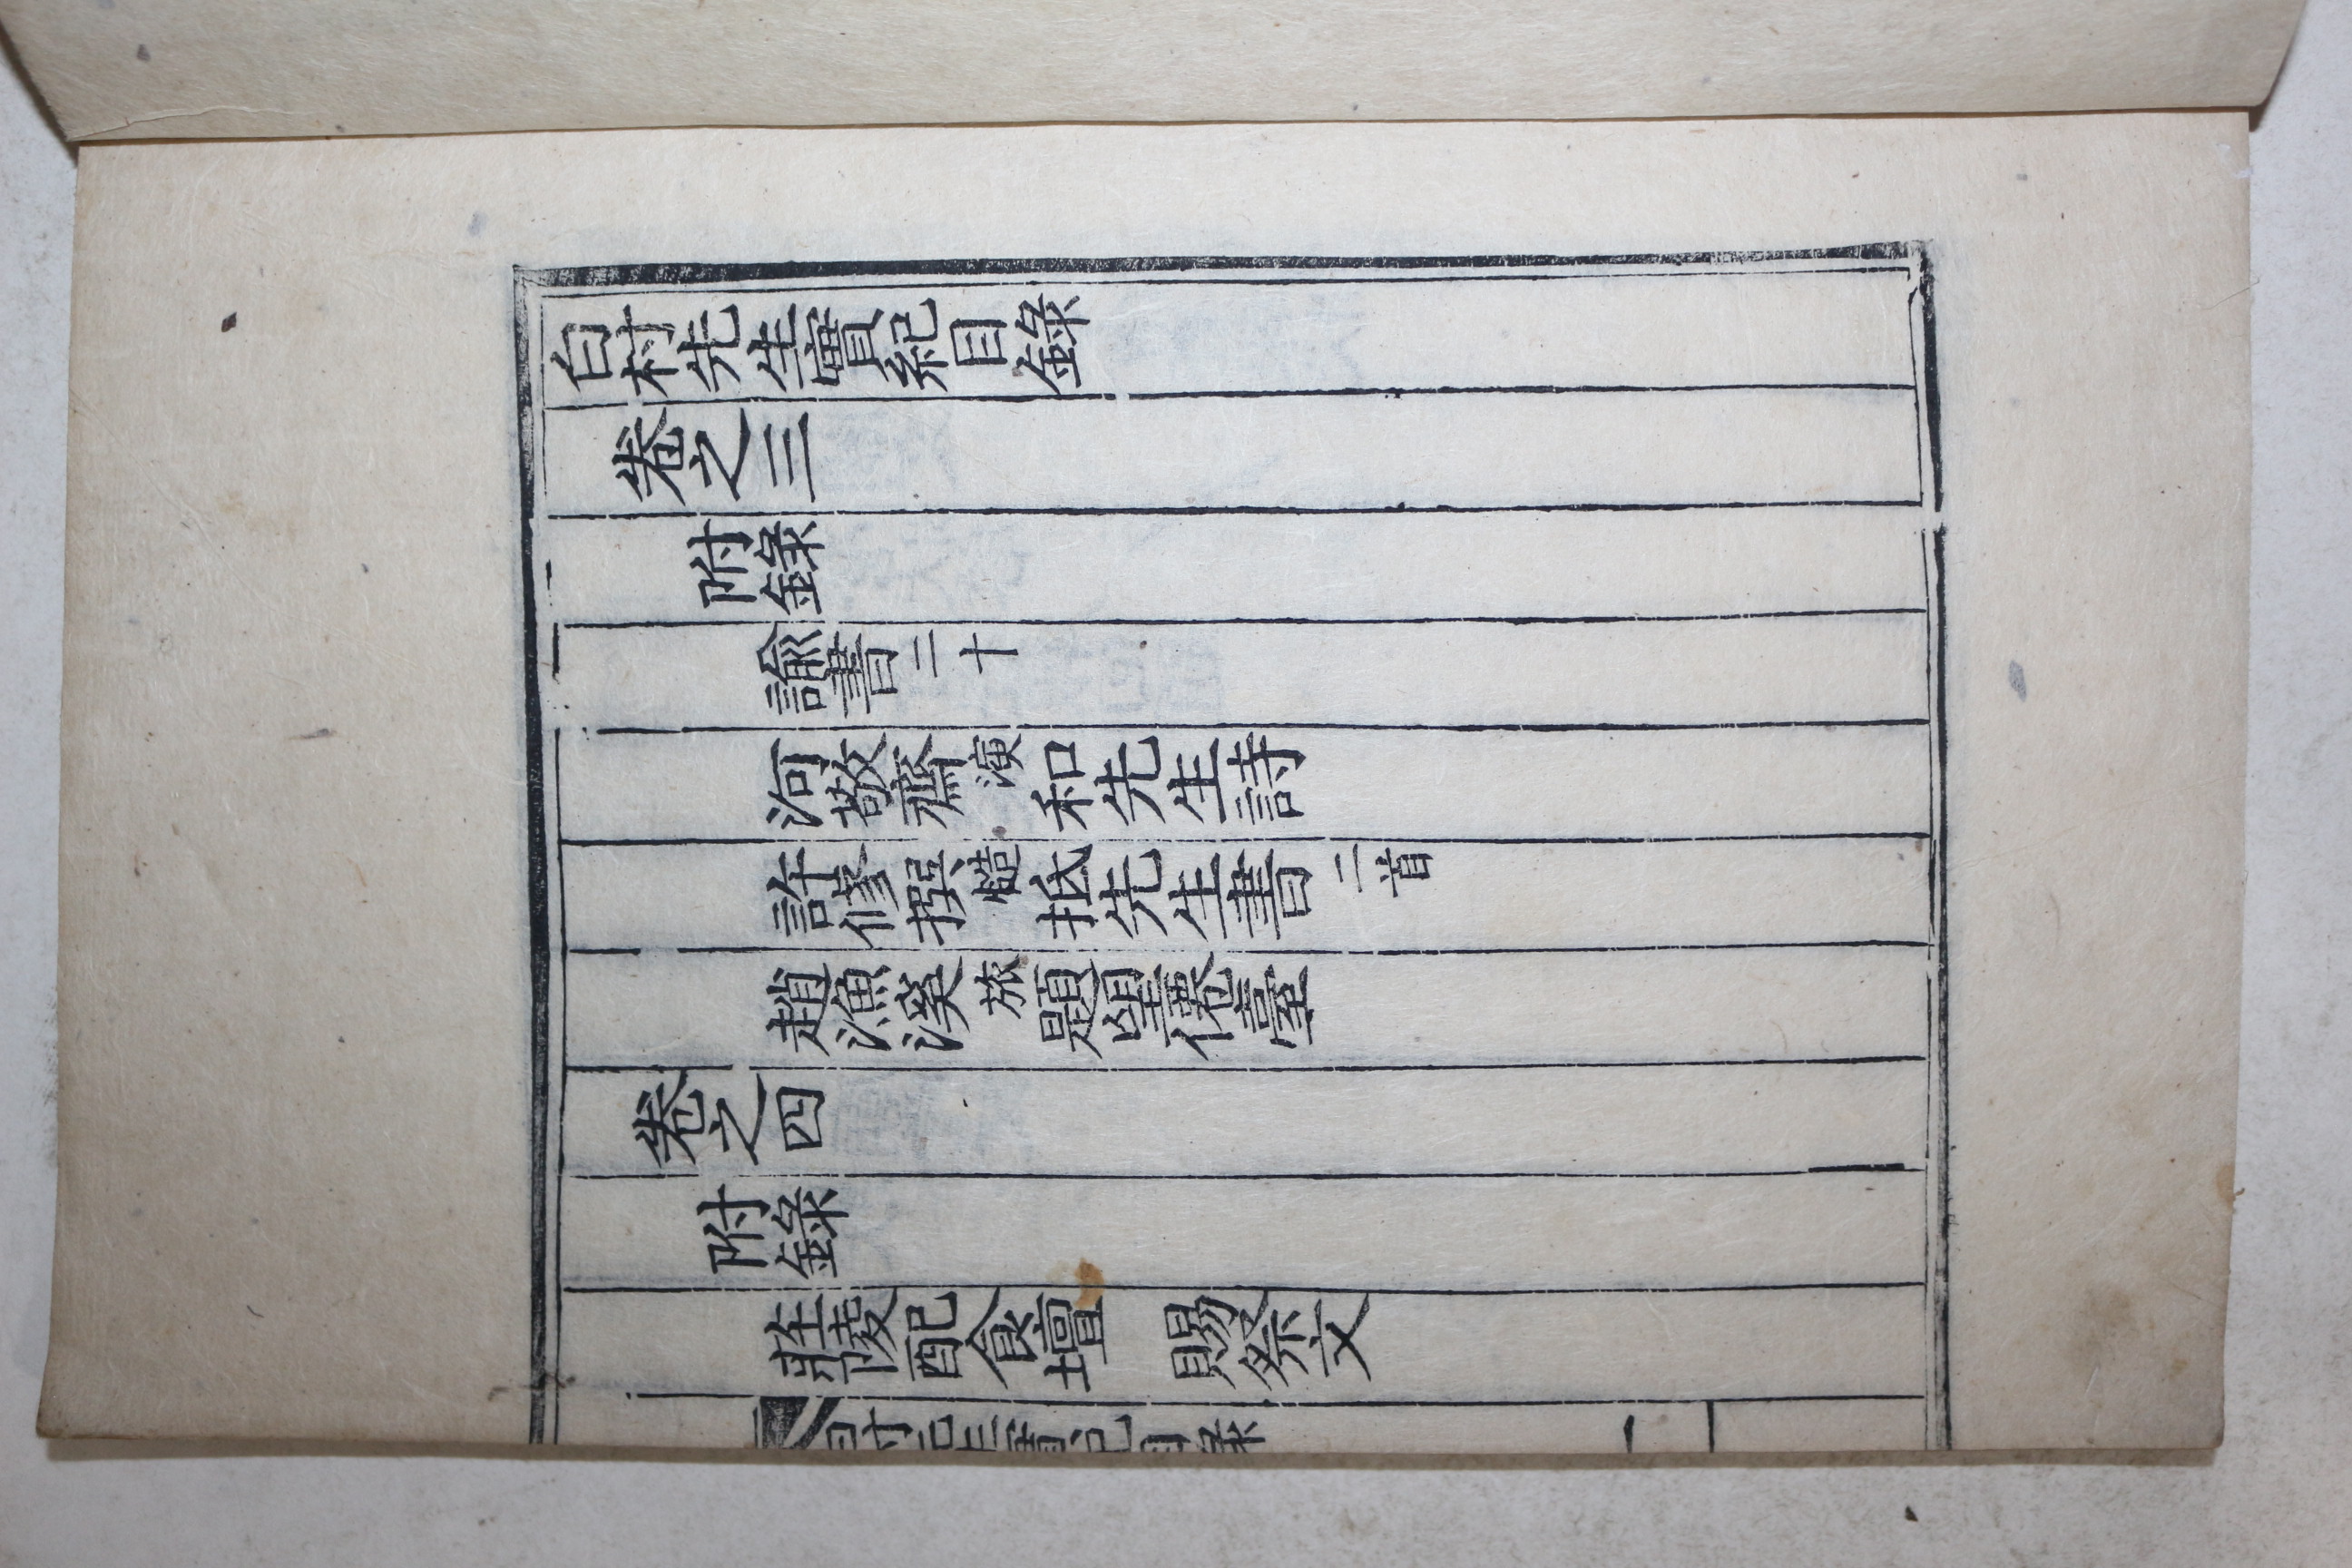 白村先生實紀目錄
卷之三
附錄
諭書二十
河敬齋演和先生詩
許修撰慥抵先生書二首
趙漁溪旅題望僊臺
卷之四
附錄
莊陵配食壇 賜祭文
白村先生實紀目錄 一